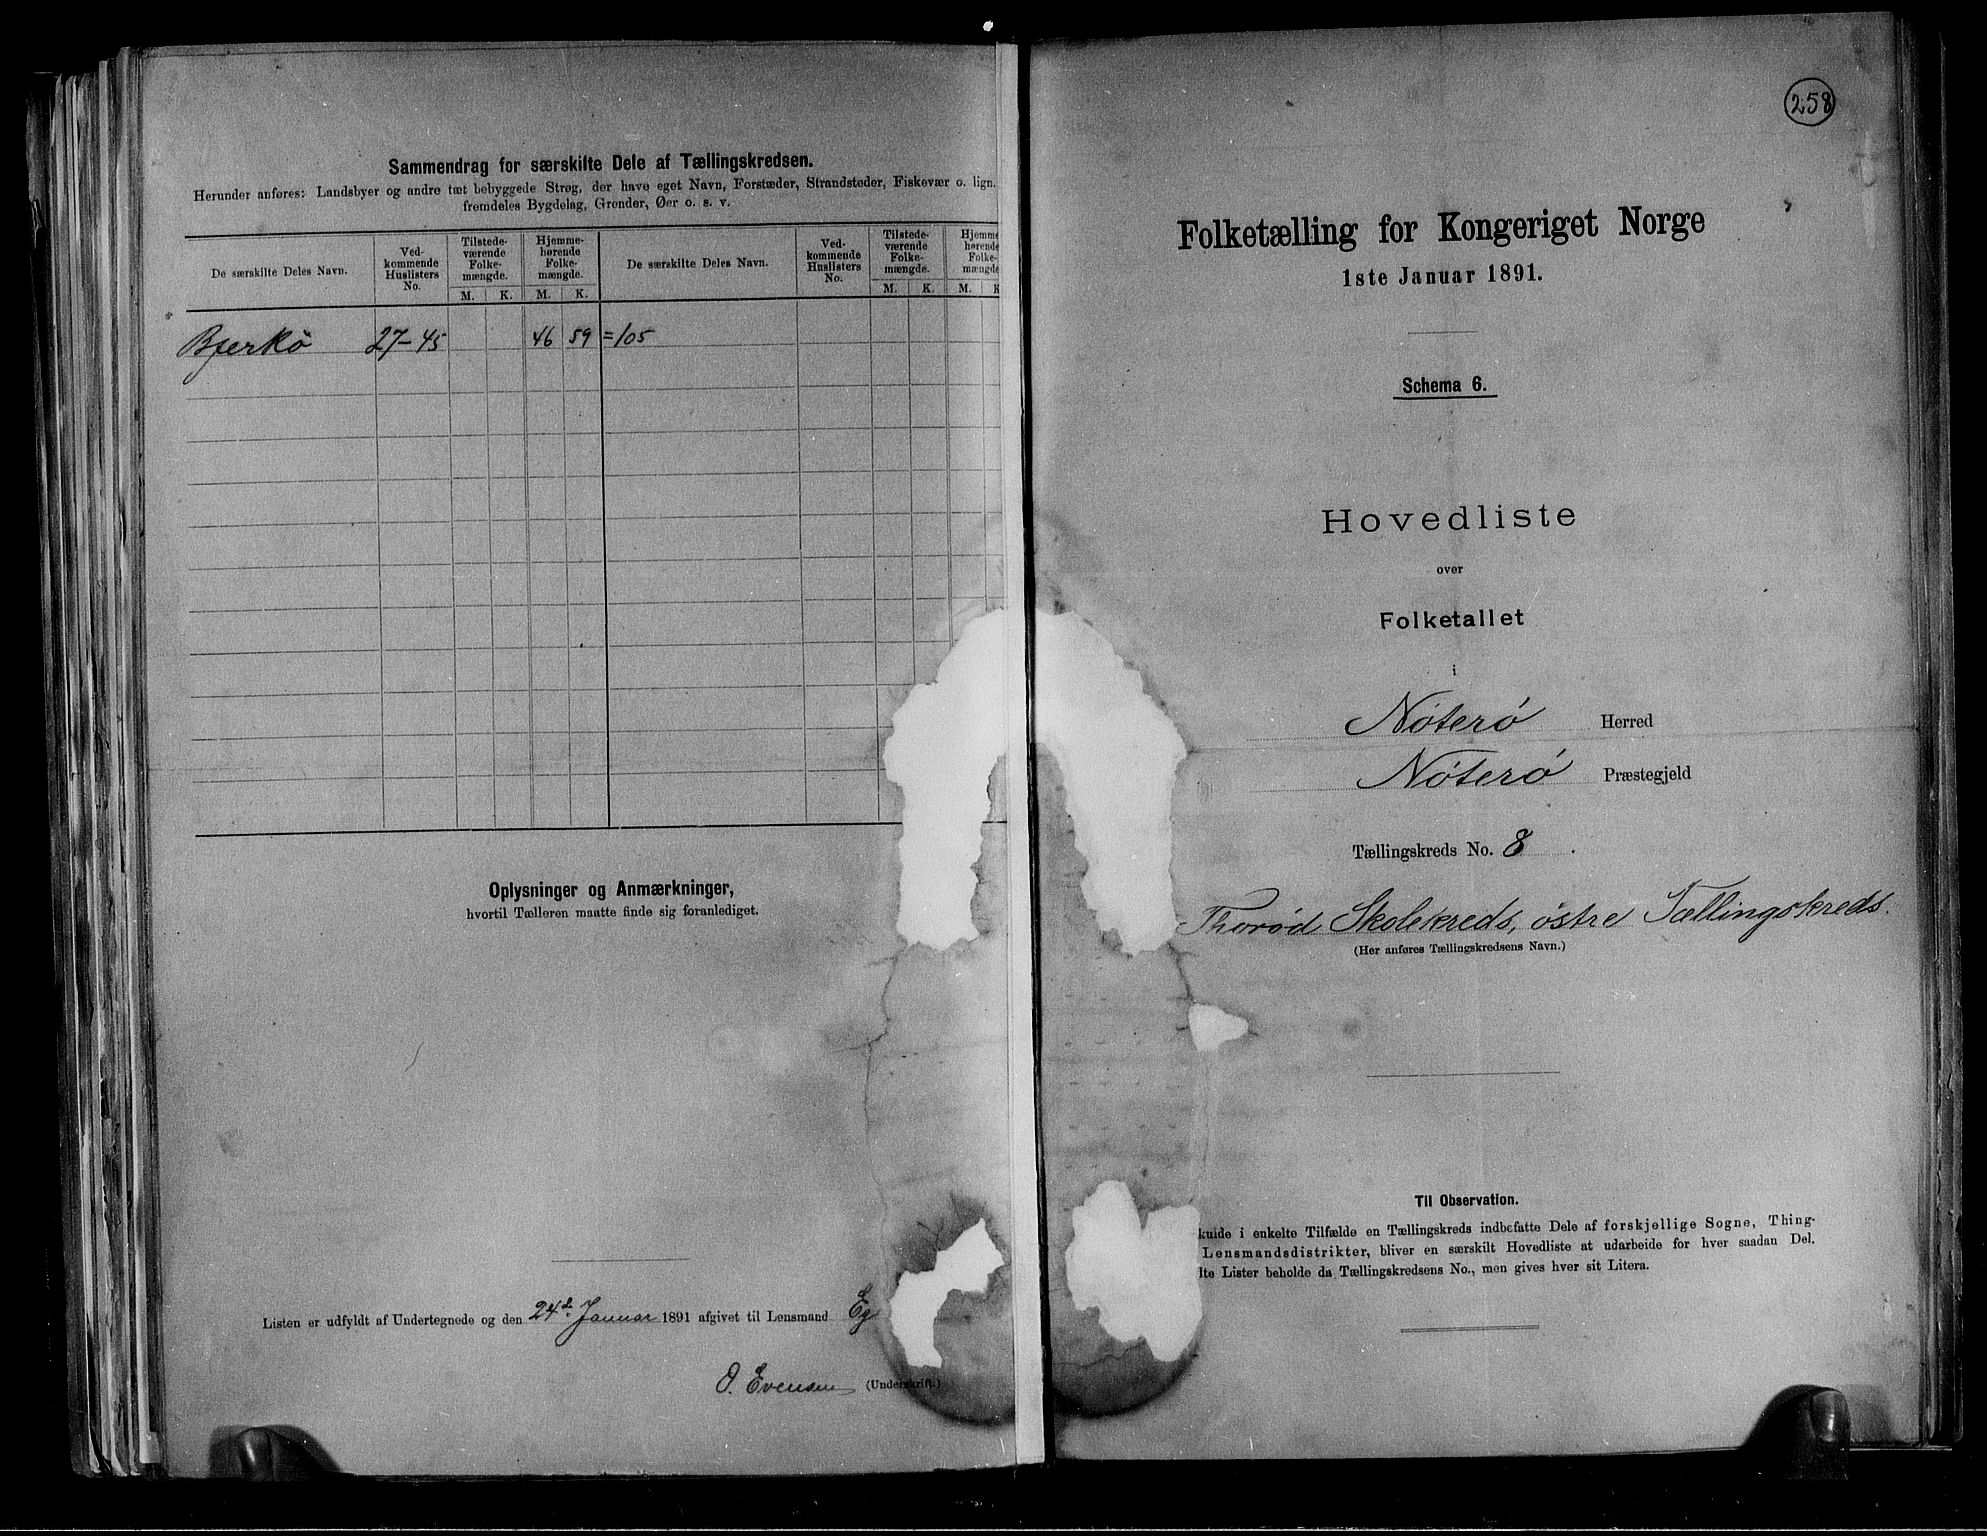 Sammendrag for særskilte Dele af Tællingskredsen.
Herunder anføres: Landsbyer og andre tæt bebyggede Strøg, der have eget Navn, Forstæder, Strandsteder, Fiskevær o. lign.
fremdeles Bygdelag, Grender, Øer o. s. v.
De særskilte Deles Navn. Ved-kommende Huslisters No. Tilstede-værende Folke-mængde. Hjemme-hørende Folke-mængde. De særskilte Deles Navn. Ved-kommende Huslisters No. Tilstede-værende Folke-mængde. Hjemme-hørende Folke-mængde.
M. K. M. K. M. K. M. K.
Bjerkö 27-45 46 59 =105
Oplysninger og Anmærkninger,
hvortil Tælleren maatte finde sig foranlediget.
Listen er udfyldt af Undertegnede og den 24d. Januar 1891 afgivet til Lensmand Eg
O. Evensen (Underskrift.)
258
Folketælling for Kongeriget Norge
1ste Januar 1891.
Schema 6.
Hovedliste
over
Folketallet
i
Nøterø Herred
Nøterø Præstegjeld
Tællingskreds No. 8.
Thorød Skolekreds, østre Tællingskreds.
(Her anføres Tællingskredsens Navn.)
Til Observation.
kulde i enkelte Tilfælde en Tællingskreds indbefatte Dele af forskjellige Sogne, Thing-
Lensmandsdistrikter, bliver en særskilt Hovedliste at udarbeide for hver saadan Del.
lte Lister beholde da Tællingskredsens No., men gives hver sit Litera.